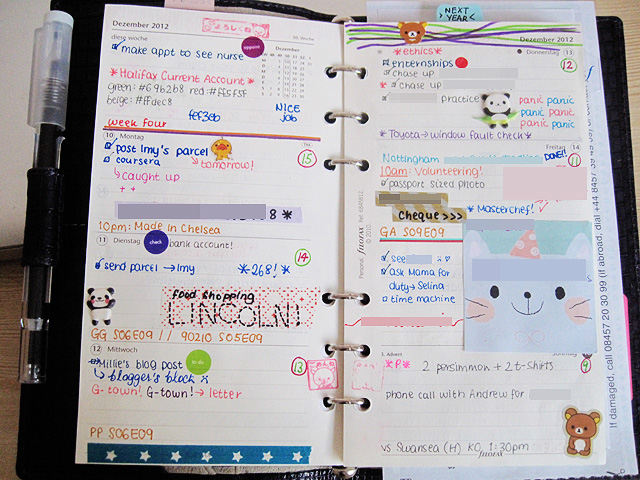 Dezember 2012
よろしくね
diese woche
50. Woche
make appt to see nurse
appoint.
Dezember
*Halifax Current Account*
green: #69b2b8 red: #ff5f5f
beige: #ffdec8
fef3eb
NICE
job
week four
10 Montag
post Imy's parcel
coursera
tomorrow!
15
caught up
8 *
10pm: Made In Chelsea
11 Dienstag
check
bank account!
14
send parcel → Imy
*268!*
food shopping
LINCOLN!
GG S06E09 // 90210 S05E09
12 Mittwoch
to do
13
Millie's blog post
blogger's block x
G-town! G-town! → letter
PP S06E09
NEXT
YEAR
Dezember 2012
*ethics*
Donnerstag 13
externships
12
chase up
* chase up
practice
panic panic
panic panic
panic panic
*Toyota → window fault check*
Freitag 14
Nottingham
DONE!!
11
10am: Volunteering!
passport sized photo
* Masterchef!
cheque >>>
GA S09E09
see
ask Mama for
duty → Selina
time machine
3. Advent
Sonntag
9
*P*
2 persimmon + 2 t-shirts
phone call with Andrew for
vs Swansea (H) KO 1:30pm
filofax
Personal filofax
© 2010
If damaged, call 08457 20 30 99 (if abroad, dial +44 8457